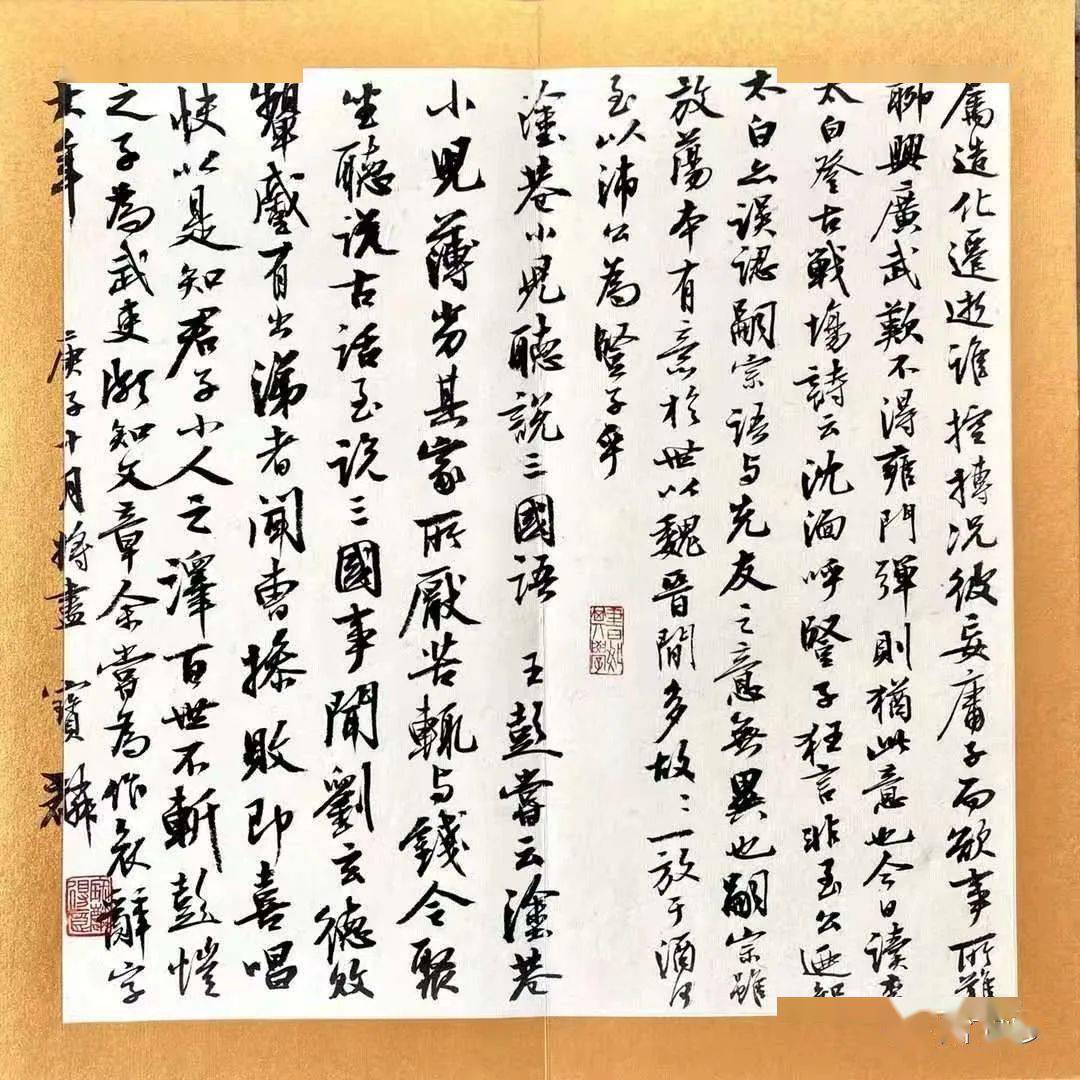 厲造化遷逝誰控搏况彼妄庸子而欲事所難
聊興廣武歎不得雍門彈則猶此意也今日讀李
太白登古戰場詩云沈湎呼豎子狂言非至公迺知
太白亦誤認嗣宗语与先友之意無異也嗣宗雖
放蕩本有意於世以魏晉間多故〻一放于酒何
至以沛公為豎子乎
塗巷小兒聽說三國语 王彭嘗云塗巷
小兒薄劣其家所厭苦輒与錢令聚
坐聽说古话至说三國事聞劉玄德敗
顰蹙有出涕者聞曹操敗即喜唱
快以是知君子小人之澤百世不斬彭愷
之子為武吏頗知文章余嘗為作哀辭字
大年 庚子十月將盡 寶麟